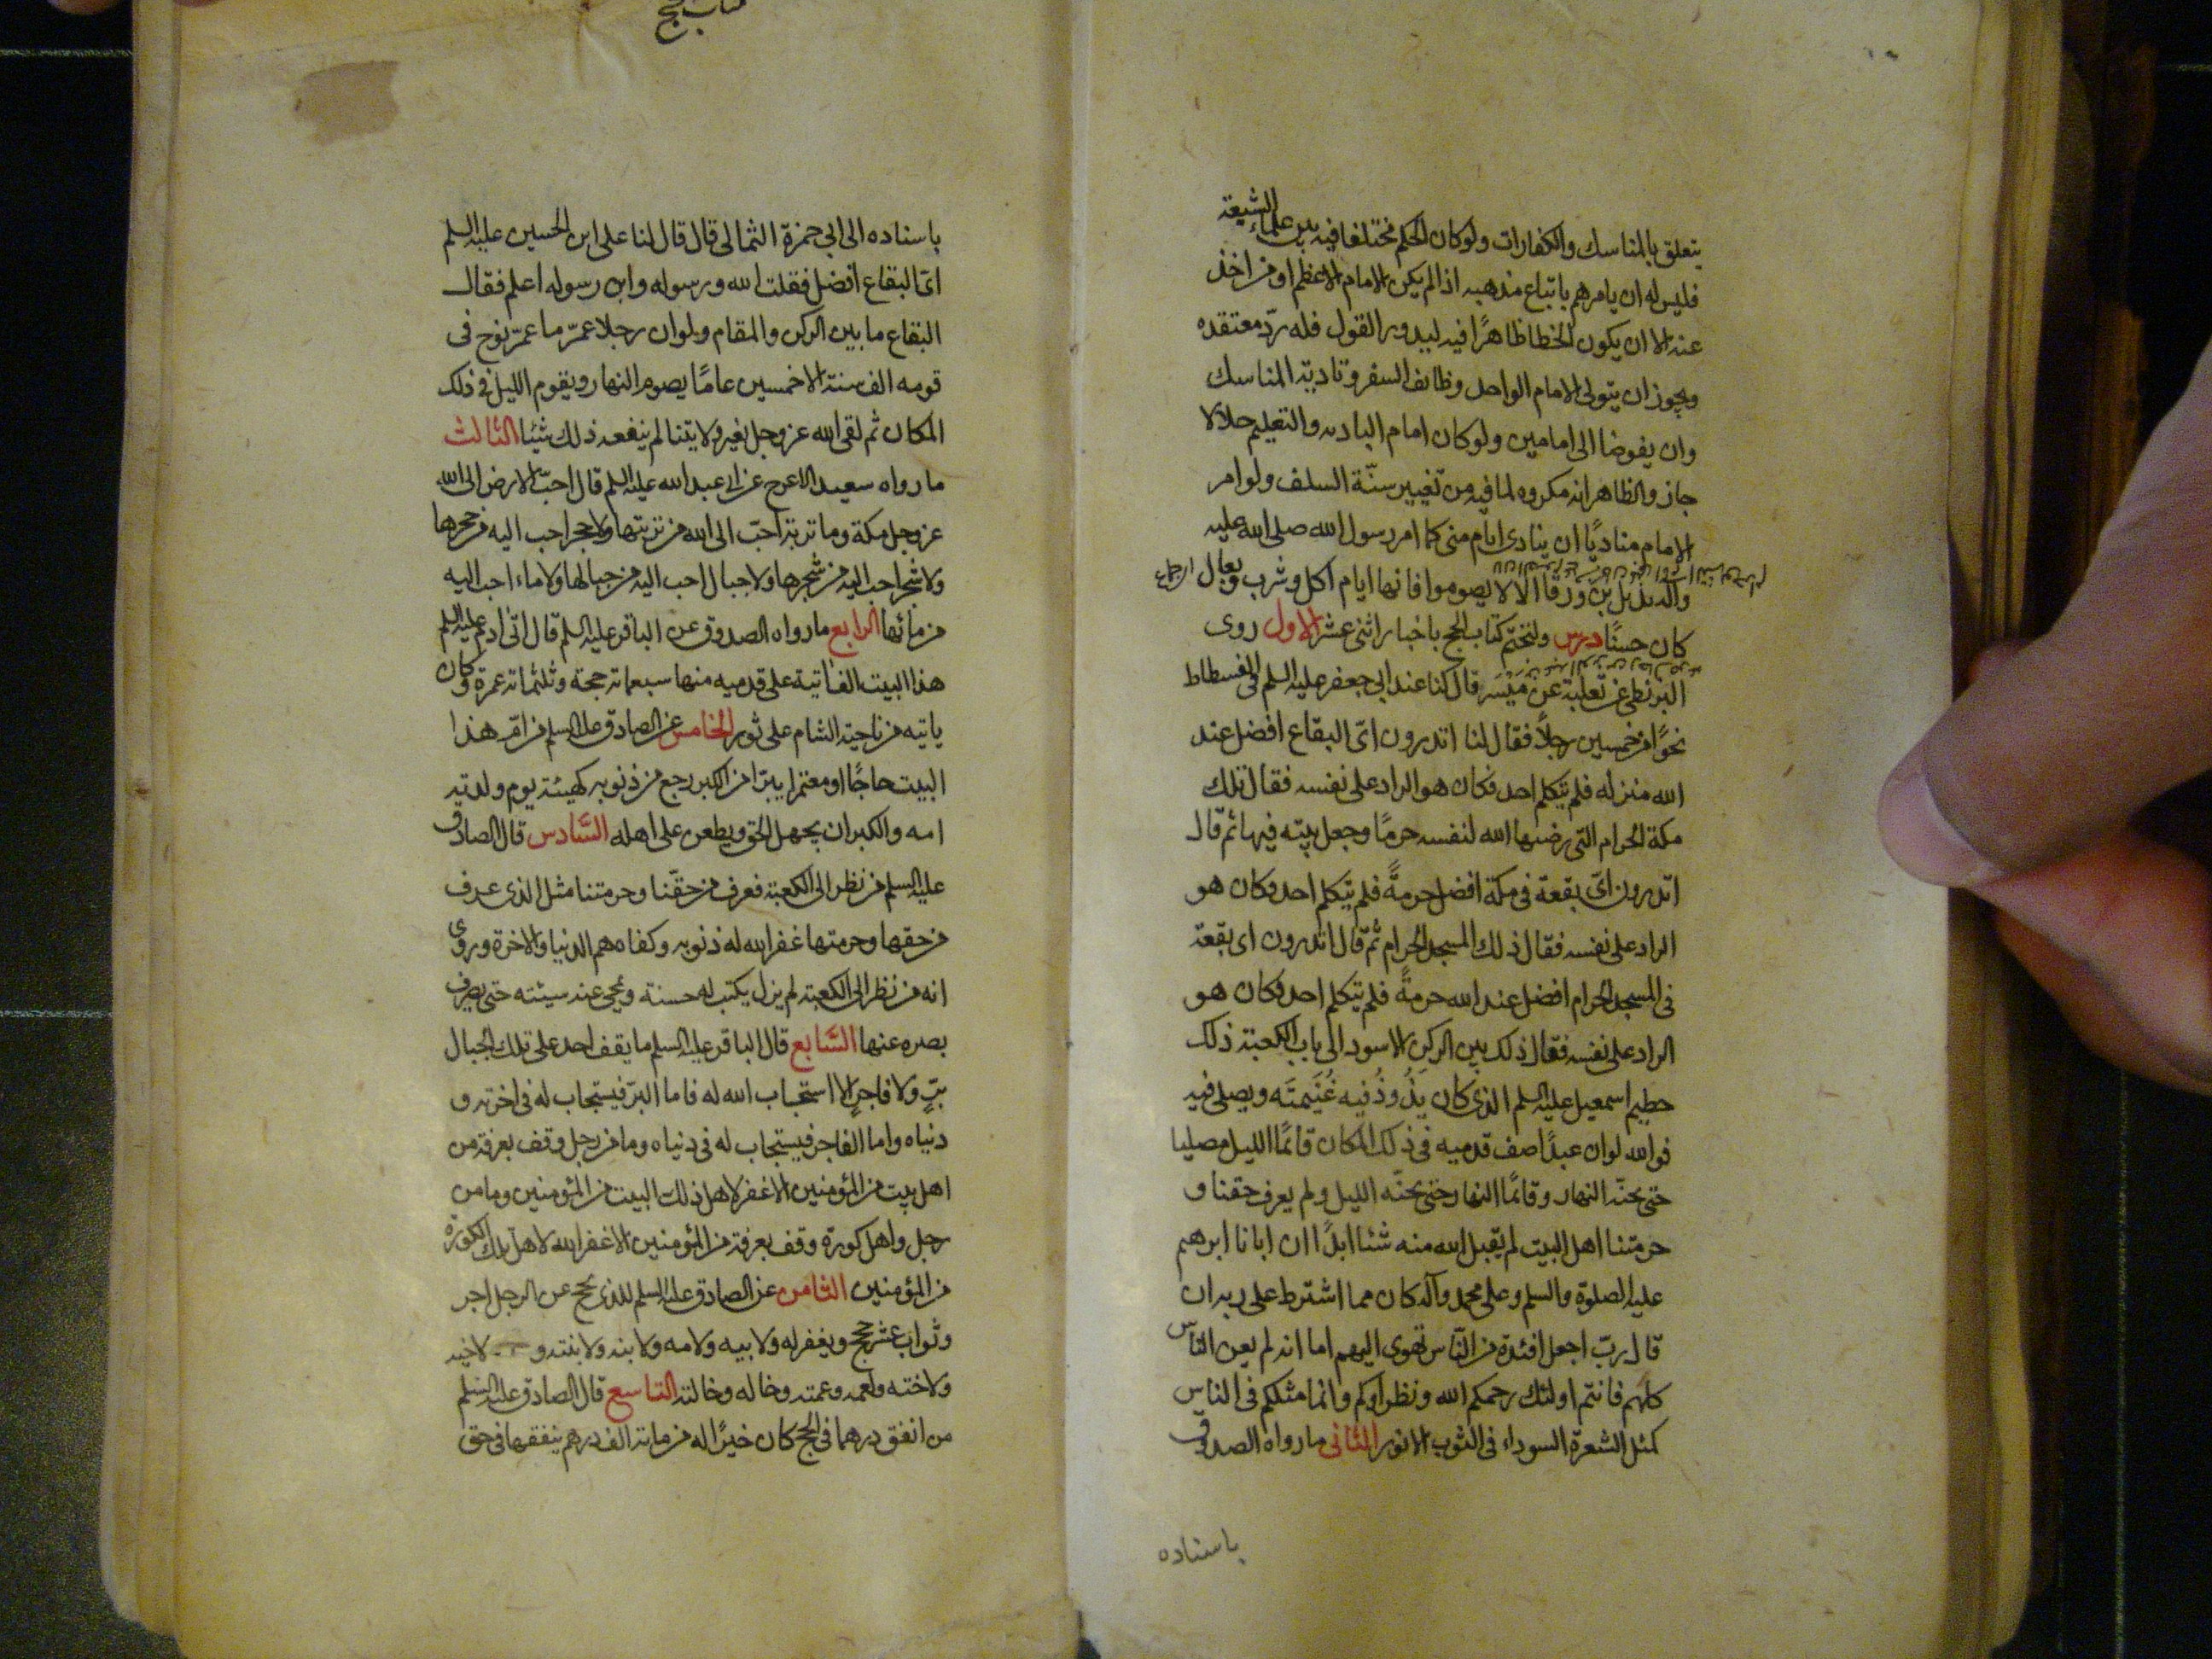 يتعلق بالمناسك والكفارات ولو كان الحكم مختلفا فيه بين علماء الشيعة
فليس له ان يامرهم باتباع مذهبه اذا لم يكن الامام الاعظم او من اخذ
عنه الا ان يكون الخطا ظاهرًا فيه لبدور القول فله ردّ معتقده
ويجوز ان يتولى الامام الواحد وظائف السفر وتادية المناسك
وان يفوضا الى امامين ولو كان امام البادية والتعليم حلالا
جاز والظاهر انه مكروه لما فيه من تغيير سنّة السلف ولو امر
الامام مناديًا ان ينادى ايام منى كما امر رسول الله صلى الله عليه
واله بذيل بن ورقا الا لا يصوموا فانها ايام اكل وشرب وبعال
كان حسنًا درس ولنختم كتاب الحج باخبار اثنى عشر الاول روى
البزنطى عن ثعلبة عن ميسر قال كنا عند ابى جعفر عليه السلم فى الفسطاط
نحوًا من خمسين رجلًا فقال لنا اتدرون اىّ البقاع افضل عند
الله منزله فلم يتكلم احد فكان هو الراد على نفسه فقال تلك
مكة الحرام التى رضيها الله لنفسه حرمًا وجعل بيته فيها ثم قال
اتدرون اىّ بقعة فى مكة افضل حرمةً فلم يتكلم احد وكان هو
الراد على نفسه فقال ذلك المسجد الحرام ثم قال اتدرون اى بقعة
فى المسجد الحرام افضل عند الله حرمةً فلم يتكلم احد فكان هو
الراد على نفسه فقال ذلك بين الركن الاسود الى باب الكعبة ذلك
حطيم اسمعيل عليه السلم الذى كان يذُوذُ فيه غُنَيمتَه ويصلى فيه
فوالله لو ان عبدًا صف قدميه فى ذلك المكان قائمًا الليل مصليا
حتى يجنّه النهار وقائمًا النهار حتى يجنّه الليل ولم يعرف حقنا و
حرمتنا اهل البيت لم يقبل الله منه شئا ابدًا ان ابانا ابرهيم
عليه الصلوة والسلم وعلى محمد وآله كان مما اشترط على ربه ان
قال ربّ اجعل افئدة من النّاس تهوى اليهم اما انه لم يعن الناس
كلهم فانتم اولئك رحمكم الله ونظراؤكم وانما مثلكم فى الناس
كمثل الشعرة السوداء فى الثوب الانور الثانى ما رواه الصدوق
باسناده
باسناده الى ابى حمزة الثمالى قال قال لنا على ابن الحسين عليه السلم
اىّ البقاع افضل فقلت الله ورسوله وابن رسوله اعلم فقال
البقاع ما بين الركن والمقام ولو ان رجلا عمّر ما عمّر نوح فى
قومه الف سنة الا خمسين عامًا يصوم النهار ويقوم الليل فى ذلك
المكان ثم لقى الله عز وجل بغير ولايتنا لم ينفعه ذلك شيئًا الثالث
ما رواه سعيد الاعرج عن ابى عبد الله عليه السلم قال احبّ الارض الى الله
عز وجل مكة وما تربة احبّ الى الله من تربتها ولا حجر احب اليه من حجرها
ولا شجر احب اليه من شجرها ولا جبال احب اليه من جبالها ولا ماء احب اليه
من مائها الرابع ما رواه الصدوق عن الباقر عليه السلم قال اتى ادم عليه السلم
هذا البيت الف اتية على قدميه منها سبعمائة حجة وثلثمائة عمرة وكان
ياتيه من ناحية الشام على ثور الخامس عن الصادق عليه السلم من امّ هذا
البيت حاجًا او معتمرا يبرّا من الكبر رجع من ذنوبه كهيئة يوم ولدته
امه والكبر ان يجهل الحق ويطعن على اهله السّادس قال الصادق
عليه السلم من نظر الى الكعبة فعرف من حقّنا وحرمتنا مثل الذى عرف
من حقها وحرمتها غفر الله له ذنوبه وكفاه هم الدنيا والاخرة وروى
انه من نظر الى الكعبة لم يزل يكتب له حسنة ويمحى عنه سيئته حتى يصرف
بصره عنها السّابع قال الباقر عليه السلم ما يقف احد على تلك الجبال
برّ ولا فاجر الا استجاب الله له فاما البرّ فيستجاب له فى اخرته و
دنياه واما الفاجر فيستجاب له فى دنياه وما من رجل وقف بعرفة من
اهل بيت من المؤمنين الا غفر لاهل ذلك البيت من المؤمنين وما من
رجل واهل كورة وقف بعرفة من المؤمنين الا غفر الله لاهل تلك الكورة
من المؤمنين الثامن عن الصادق عليه السلم للذى يحج عن الرجل اجر
وثواب عشر حجج ويغفر له ولابيه ولامه ولابنه ولابنته و لاخيه
ولاخته ولعمه وعمته وخاله وخالته التاسع قال الصادق عليه السلم
من انفق درهما فى الحج كان خيرًا له من مائة الف درهم ينفقها فى حق